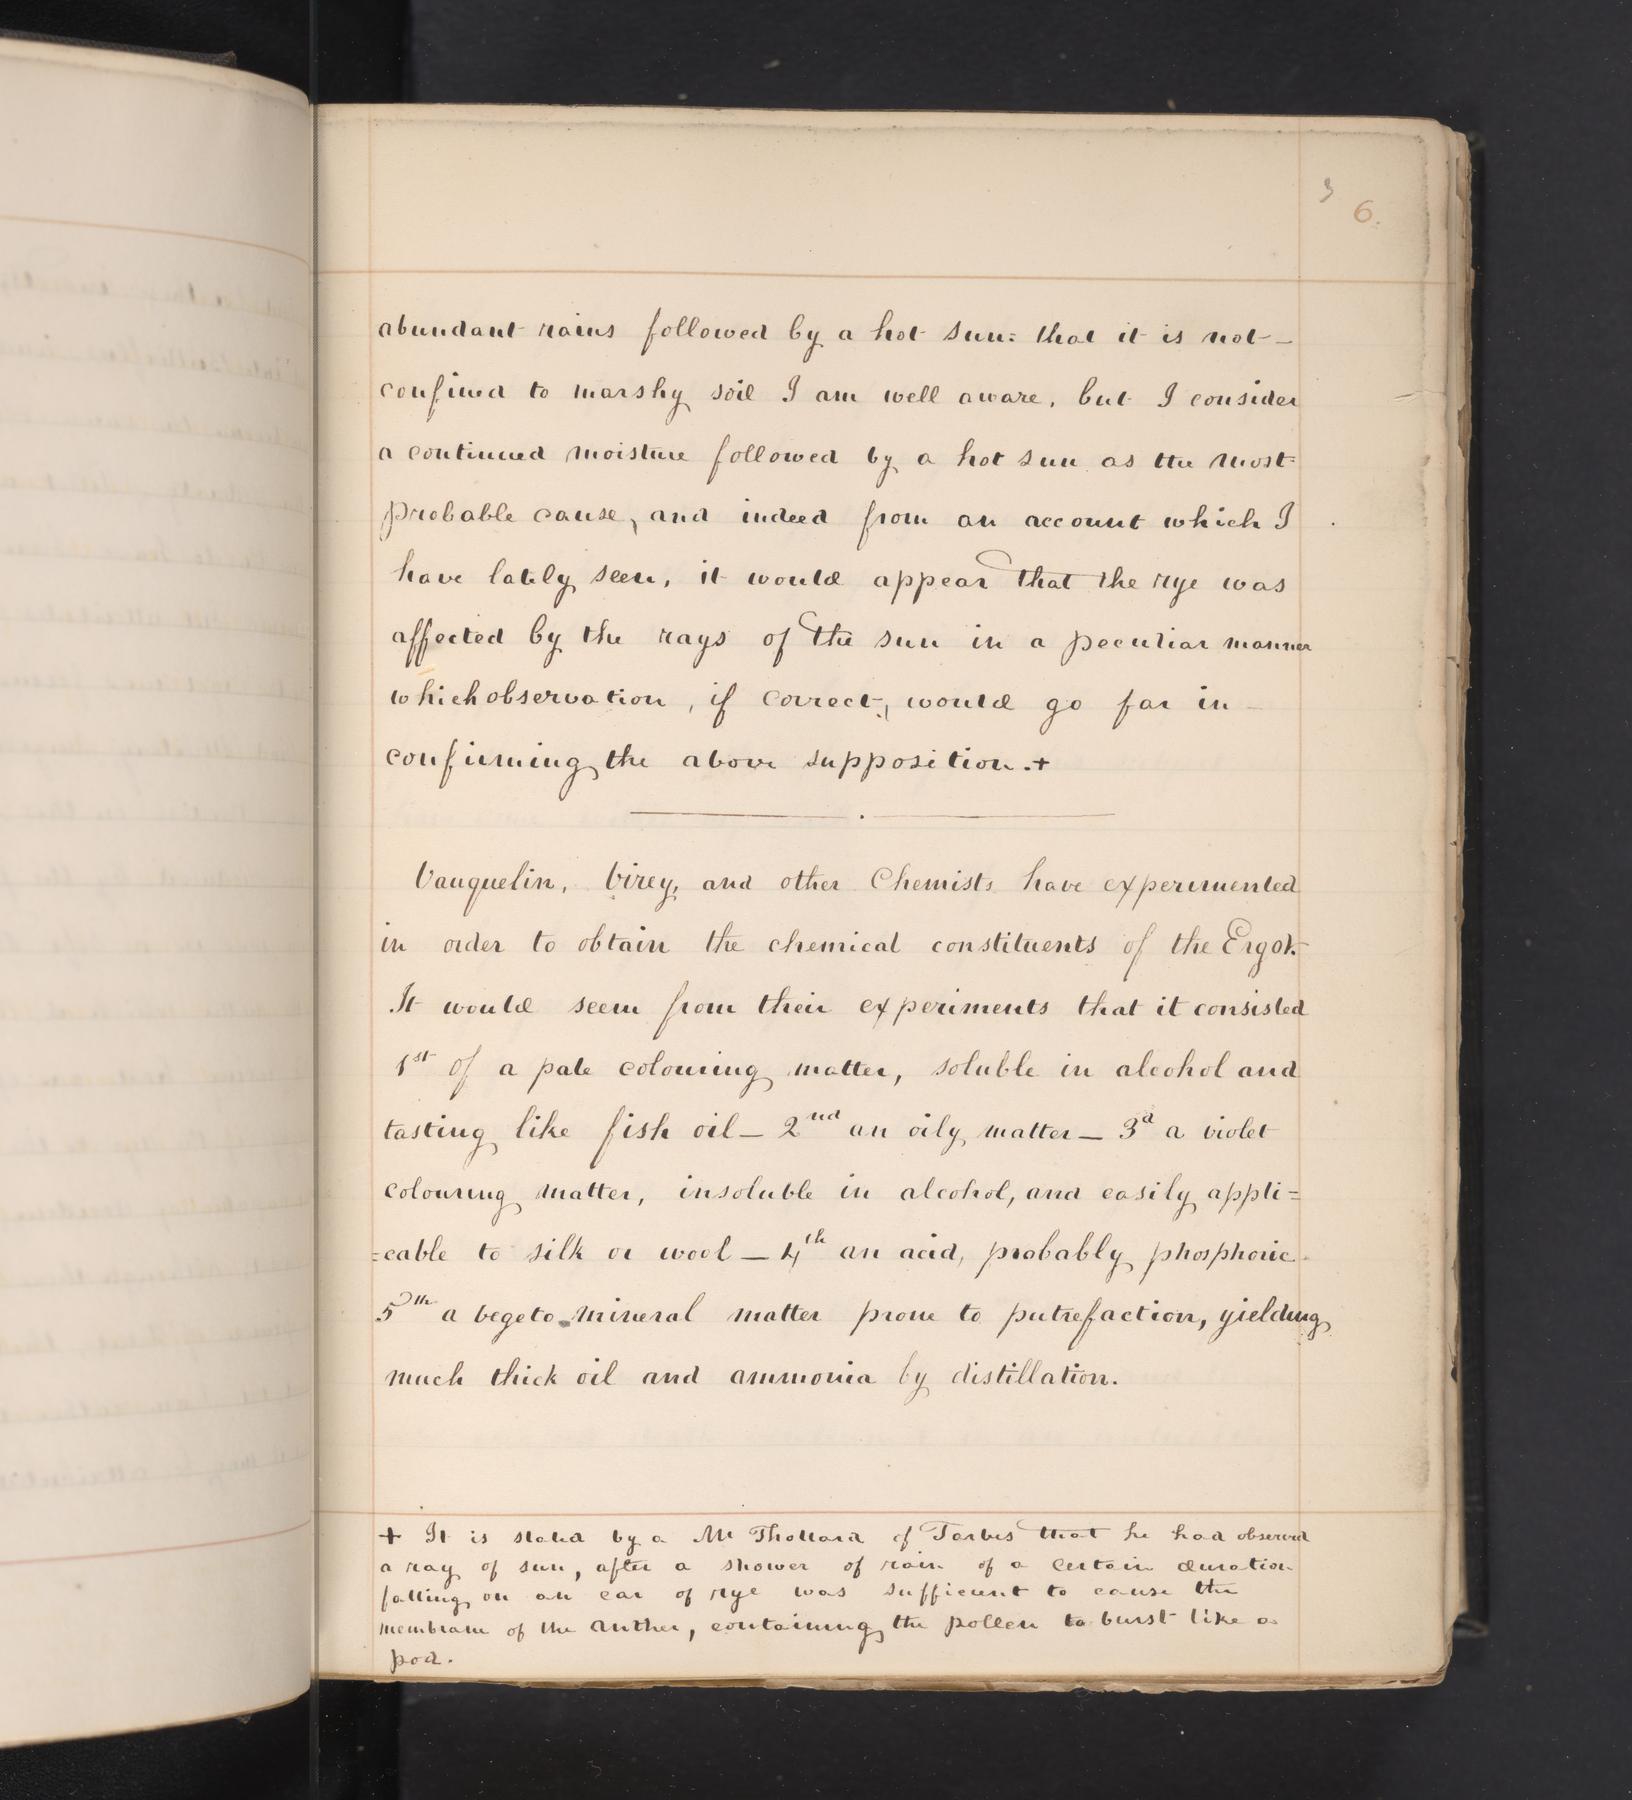 3 6.
abundant rains followed by a hot sun: that it is not
confined to marshy soil I am well aware, but I consider
a continued moisture followed by a hot sun as the most
probable cause, and indeed from an account which I
have lately seen, it would appear that the rye was
affected by the rays of the sun in a peculiar manner
which observation, if correct, would go far in
confirming the above supposition.+
Vauquelin, Virey, and other Chemists have experimented
in order to obtain the chemical constituents of the Ergot.
It would seem from their experiments that it consisted
1st of a pale colouring matter, soluble in alcohol and
tasting like fish oil — 2nd an oily matter — 3d a violet
colouring matter, insoluble in alcohol, and easily appli=
=cable to silk or wool — 4th an acid, probably phosphoric
5th a vegeto-mineral matter prone to putrefaction, yielding
much thick oil and ammonia by distillation.
+ It is stated by a Mr Thollard of Tarbes that he had observed
a ray of sun, after a shower of rain of a certain duration
falling on an ear of rye was sufficient to cause the
membrane of the anther, containing the pollen to burst like a
pod.